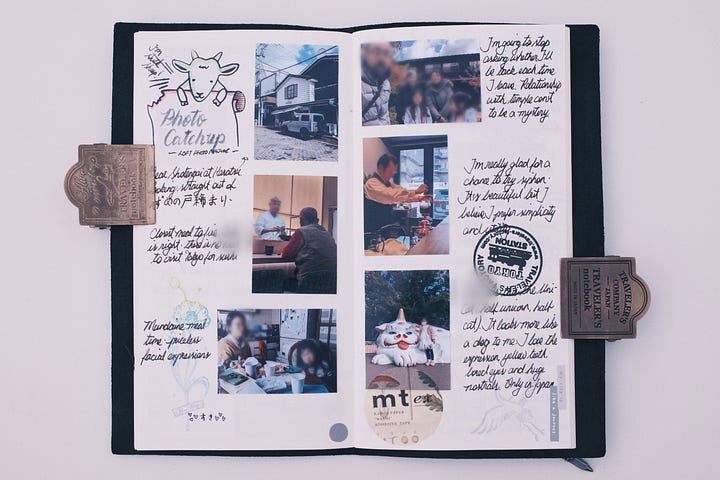 Photo
Catchup
- LOFT PHOTO MACHINE -
Shotengai at Karatsu
looking straight out of
ずめの戸締まり.
Closest need to
is right. There is no need
to visit Tokyo for sushi
Mundane meal
time - priceless
facial expressions
すき
I'm going to stop
asking whether I'll
be back each time
I leave. Relationship
with temple cont
to be a mystery.
I'm really glad for a
chance to try syphon.
It is beautiful but I
believe I prefer simplicity
and
TRAVELER'S FACTORY
STATION
TOKYO
the Uni-
cat (half unicorn, half
cat). It looks more like
a dog to me. I love the
expression, yellow teeth
bored eyes and huge
nostrils. Only in Japan.
mt ex
ADHESIVE TAPE
TRAVELER'S
notebook
TRAVELER'S
COMPANY
JAPAN
TRAVELER'S
notebook